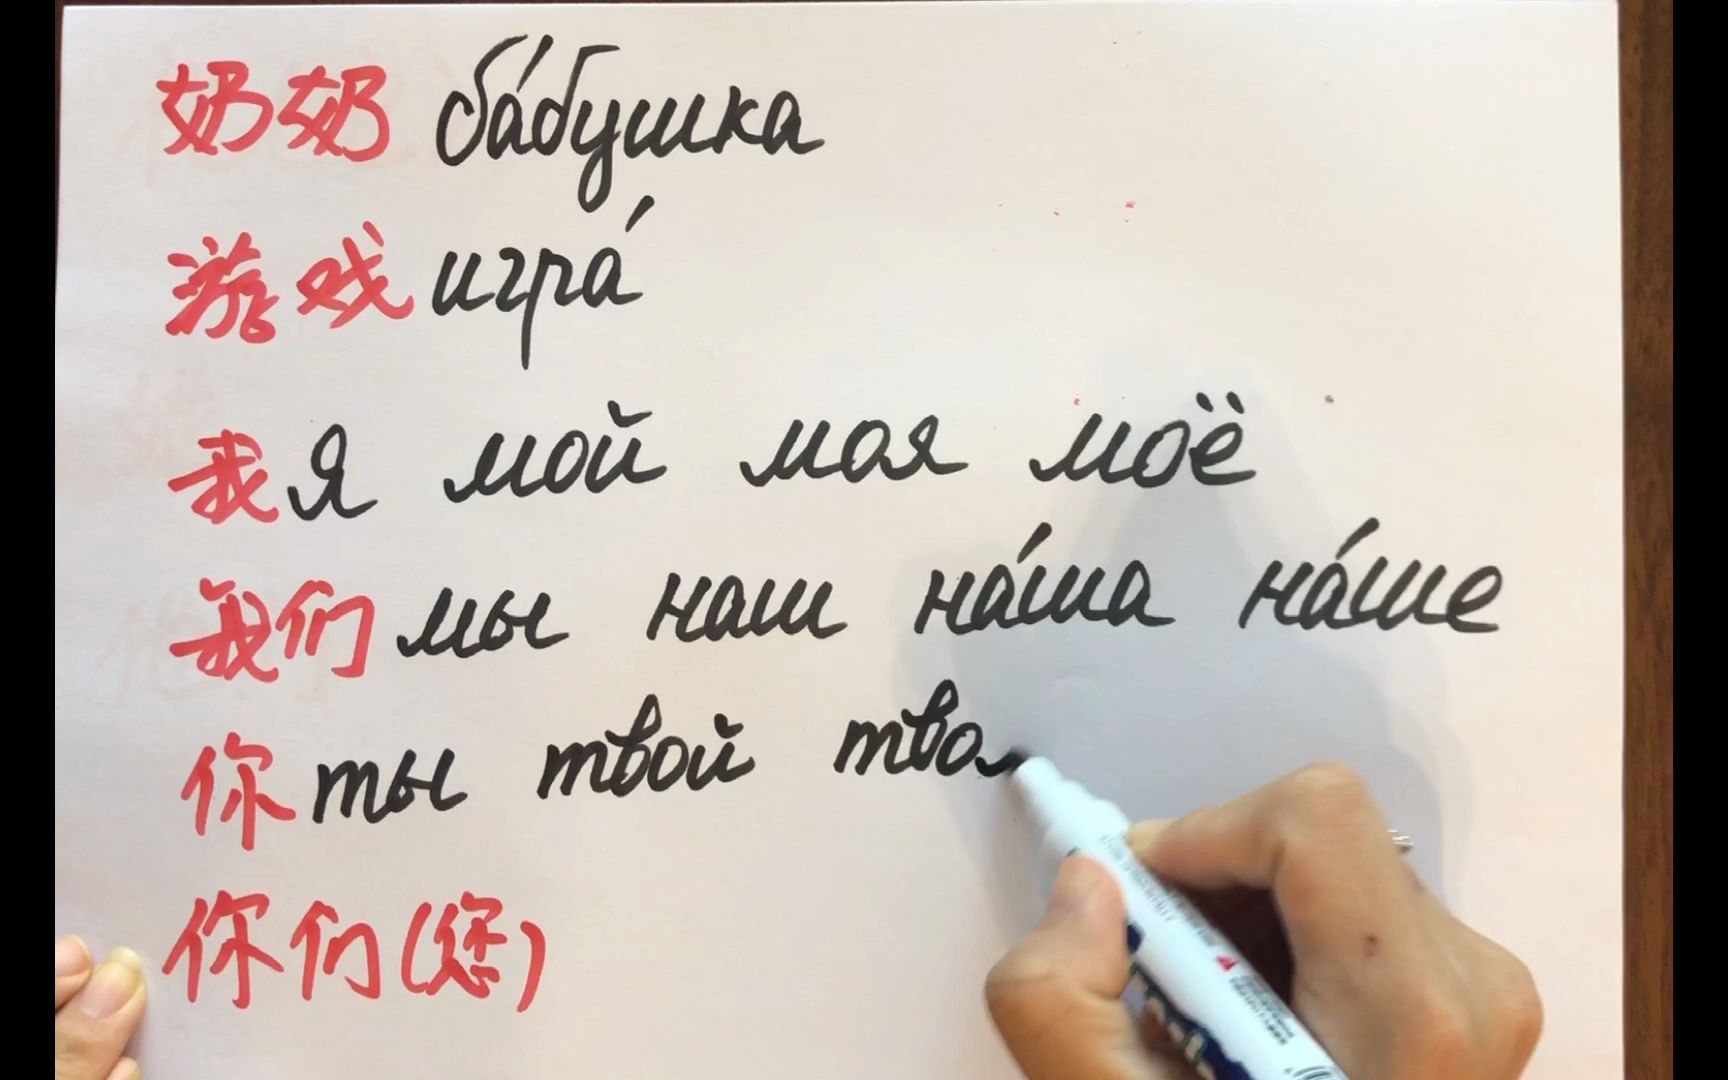 奶奶 ба́бушка
游戏 игра́
我 я мой моя моё
我们 мы наш на́ша на́ше
你 ты твой тво
你们(您)